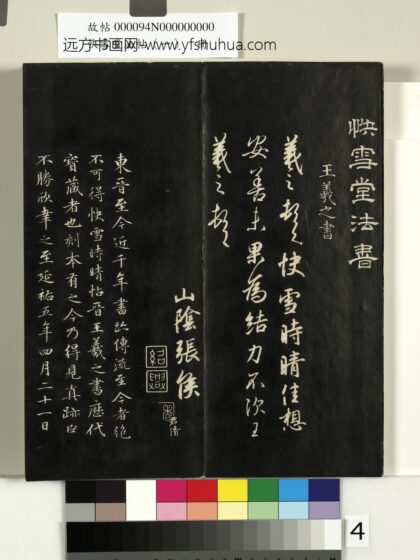 故帖 000094N000000000
远方书画网-www.yfshuhua.com
快雪堂法書
王羲之書
羲之頓首快雪時晴佳想
安善未果為結力不次王
羲之頓首
山陰張侯
紹興
東晉至今近千年書跡傳流至今者絕
不可得快雪時晴帖晉王羲之書歷代
寶藏者也刻本有之今乃得見真跡臣
不勝欣幸之至延祐五年四月二十一日
4